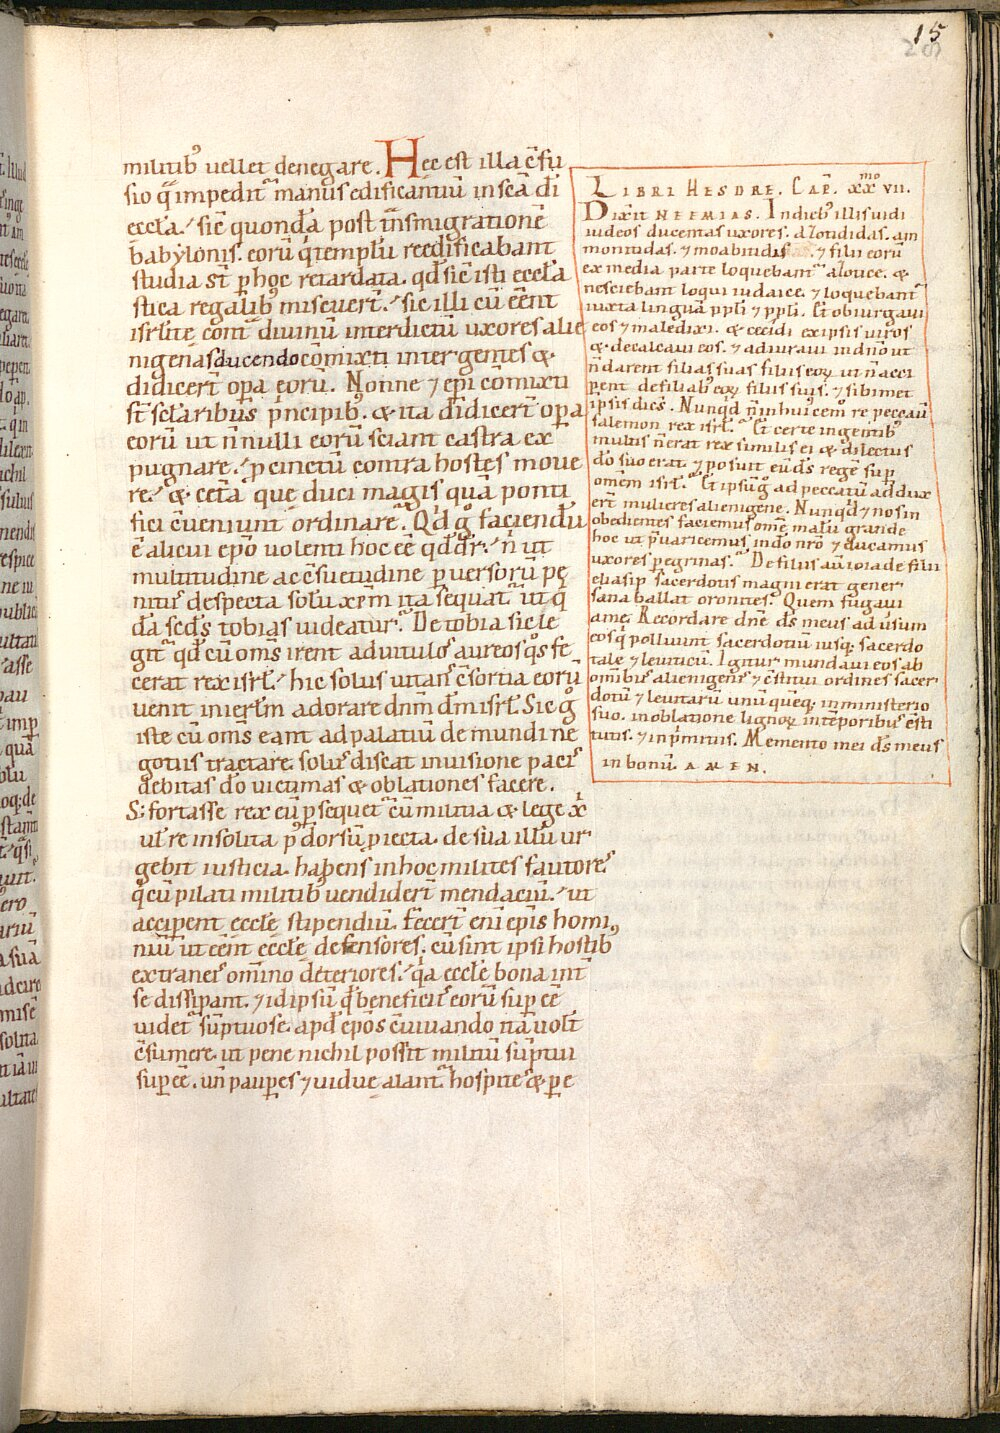 15
28
militibꝰ vellet denegare. Hec est illa c̄fu
sio q̄ impedit᷑ manus edificantiū in sc̄a d̄i
eccl̄a. sic̄ quonda̅ post tn̄smigratione̅
babylonis. eoru̅ q̇ templu̅ reedificabant
studia st̄ ꝑ hoc retardata. qd̄ sic̄ isti eccl̄a
stica regalibꝰ miscuer̄t. sic illi cu̅ ee̅nt
isrl̄ite cont᷑ diuinu̅ interdictu̅ uxores alie
nigenas ducendo co̅mixti inter gentes &
didicer̄t oꝑa eoru̅. Nonne ⁊ ep̄i co̅mixti
st̄ sclaribus pⁱncipibꝰ. & ita didicer̄t oꝑa
eoru̅ ut n̄nulli eoru̅ sciant castra ex
pugnare. ꝓcinctu̅ contra hostes moue
re. & cet̄a que duci magis qua̅ ponti
fici c̄ueniunt ordinare. Qd̄ g̊ faciendu̅
ē alicui ep̄o uolenti hoc ee̅ qd̄ d̄r. n̄ ut
multitudine ac c̄suetudine ꝑuersoru̅ pę
nitꝰ despecta solu̅ xp̄m ita sequat᷑ ut q̇
da̅ sc̄ds tobias uideatur. De tobia sic̣ le
git᷑ qd̄ cu̅ om̄s irent ad uitulos aureos q̊s fe
cerat rex isrl̄. hic solus uitans c̄sortia eoru̅
uenit in ierl̄m adorare dn̄m d̄m isrl̄. Sic g̊
iste cu̅ om̄s eant ad palatiu̅ de mundi ne
gotiis tractare. solus discat in uisione pacis
debitas d̄o uictimas & oblationes facere.
Si fortasse rex eu̅ ꝑsequet᷑ cu̅ in tua & lege xⁱ
ul̄ re insolita pᵗ dorsu̅ ꝓiecta. de sua illu̅ ur
gebit iusticia. habens in hoc milites fautores
q̇ cu̅ pilati militibꝰ uendider̄t mendaciu̅. ut
acciꝑent eccl̄e stipendiu̅. fecer̄t eni̅ ep̄is homi
niu̅ ut ee̅nt eccl̄e defensores. cu̅ sint ipsi hostibꝰ
extraneis omⁱno deteriores. q̇a eccl̄e bona int᷑
se dissipant. ⁊ id ipsu̅ qd̄ beneficiis eoru̅ suꝑ ee̅
uidet᷑ su̅ptuose apd̄ ep̄os c̄uiuando ita uolt̄
c̄sumere. ut pene nichil possit militu̅ su̅ptui
suꝑ ee̅. un̄ pauꝑes ⁊ uidue alant᷑. hospites & ꝑe
LIBRI HESDRE. CAP. xxᵐᵒ vii.
Dixit NEEMIAS. In diebꝰ illis uidi
iudeos ducentes uxores. azotididas. am
monitidas. ⁊ moabitidas ⁊ filii eoru̅
ex media parte loquebant᷑ azotice. &
nesciebant loqui iudaice. ⁊ loquebant᷑
iuxta lingua̅ pp̄li ⁊ pp̄li. Et obiurgaui
eos ⁊ maledixi. & cecidi ex ipsis uiros
& decalcaui eos. ⁊ adiuraui in dn̄o ut
n̄ darent filias suas filiis eoꝝ ut n̄ acci
ꝑent de filiabꝰ eoꝝ filiis suis. ⁊ sibimet
ipsis dic̄s. Nunqd̄ n̄ in huicem̄ re peccau̅
salemon rex isrl̄. Et certe in gentibꝰ
multis n̄ erat rex similis ei & dilectus
d̄o suo erat. ⁊ posuit eu̅ d̄s rege̅ suꝑ
om̄em isrl̄. Et ipsu̅ g̊ ad peccatu̅ addux
er̄t mulieres alienigene. Nunqd̄ ⁊ nos in
obedientes faciemus om̄e malu̅ grande
hoc ut pᵘaricemus in d̄o nr̄o ⁊ ducamus
uxores ꝑegrinas. De filiis au̅ ioiade filii
eliasip sacerdotis magni erat gener
sanaballat oronites. Quem fugaui
a me. Recordare dn̄e d̄s meus aduersum
eos q̇ polluunt sacerdotiu̅ iusqꝫ sacerdo
tale ⁊ leuiticu̅. Igitur mundaui eos ab
omⁱnibꝰ alienigenis ⁊ c̄stitui ordines sacer
dotu̅ ⁊ leuitaru̅ unu̅ que̅qꝫ in ministerio
suo. in oblatione lignoꝝ in te̅poribus c̄sti
tutis. ⁊ in pⁱmitiis. Memento mei d̄s meus
in bonu̅. AMEN.